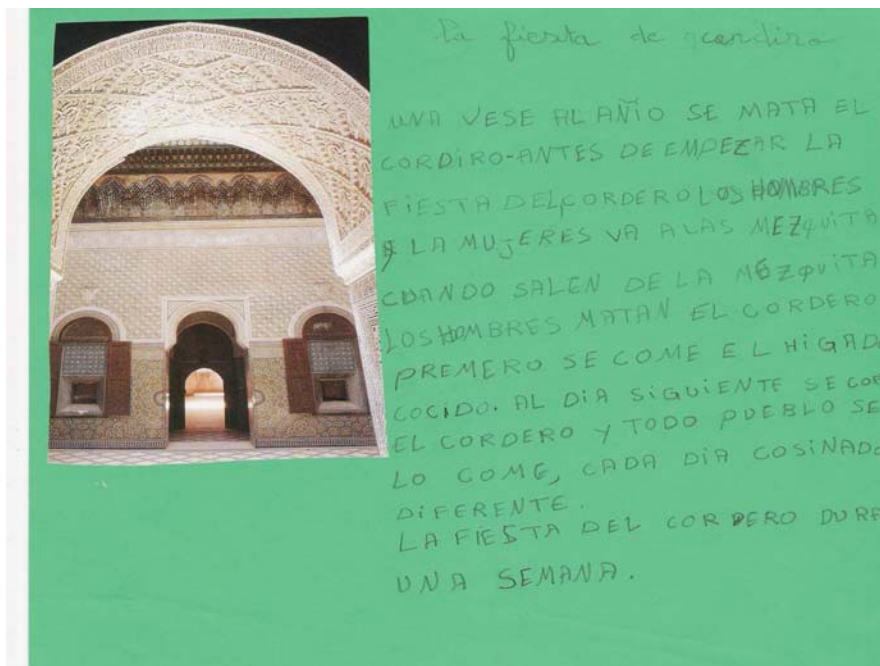 La fiesta de
UNA VESE AL AÑIO SE MATA EL
CORDIRO-ANTES DE EMPEZAR LA
FIESTA DEL CORDERO LOS HOMBRES
LA MUJERES VA A LAS MEZQUITA
CUANDO SALEN DE LA MEZQUITA
LOS HOMBRES MATAN EL CORDERO
PREMERO SE COME EL HIGAD
COCIDO. AL DIA SIGUIENTE SE COR
EL CORDERO Y TODO PUEBLO SE
LO COME, CADA DIA COSINADO
DIFERENTE.
LA FIESTA DEL CORDERO DURA
UNA SEMANA.